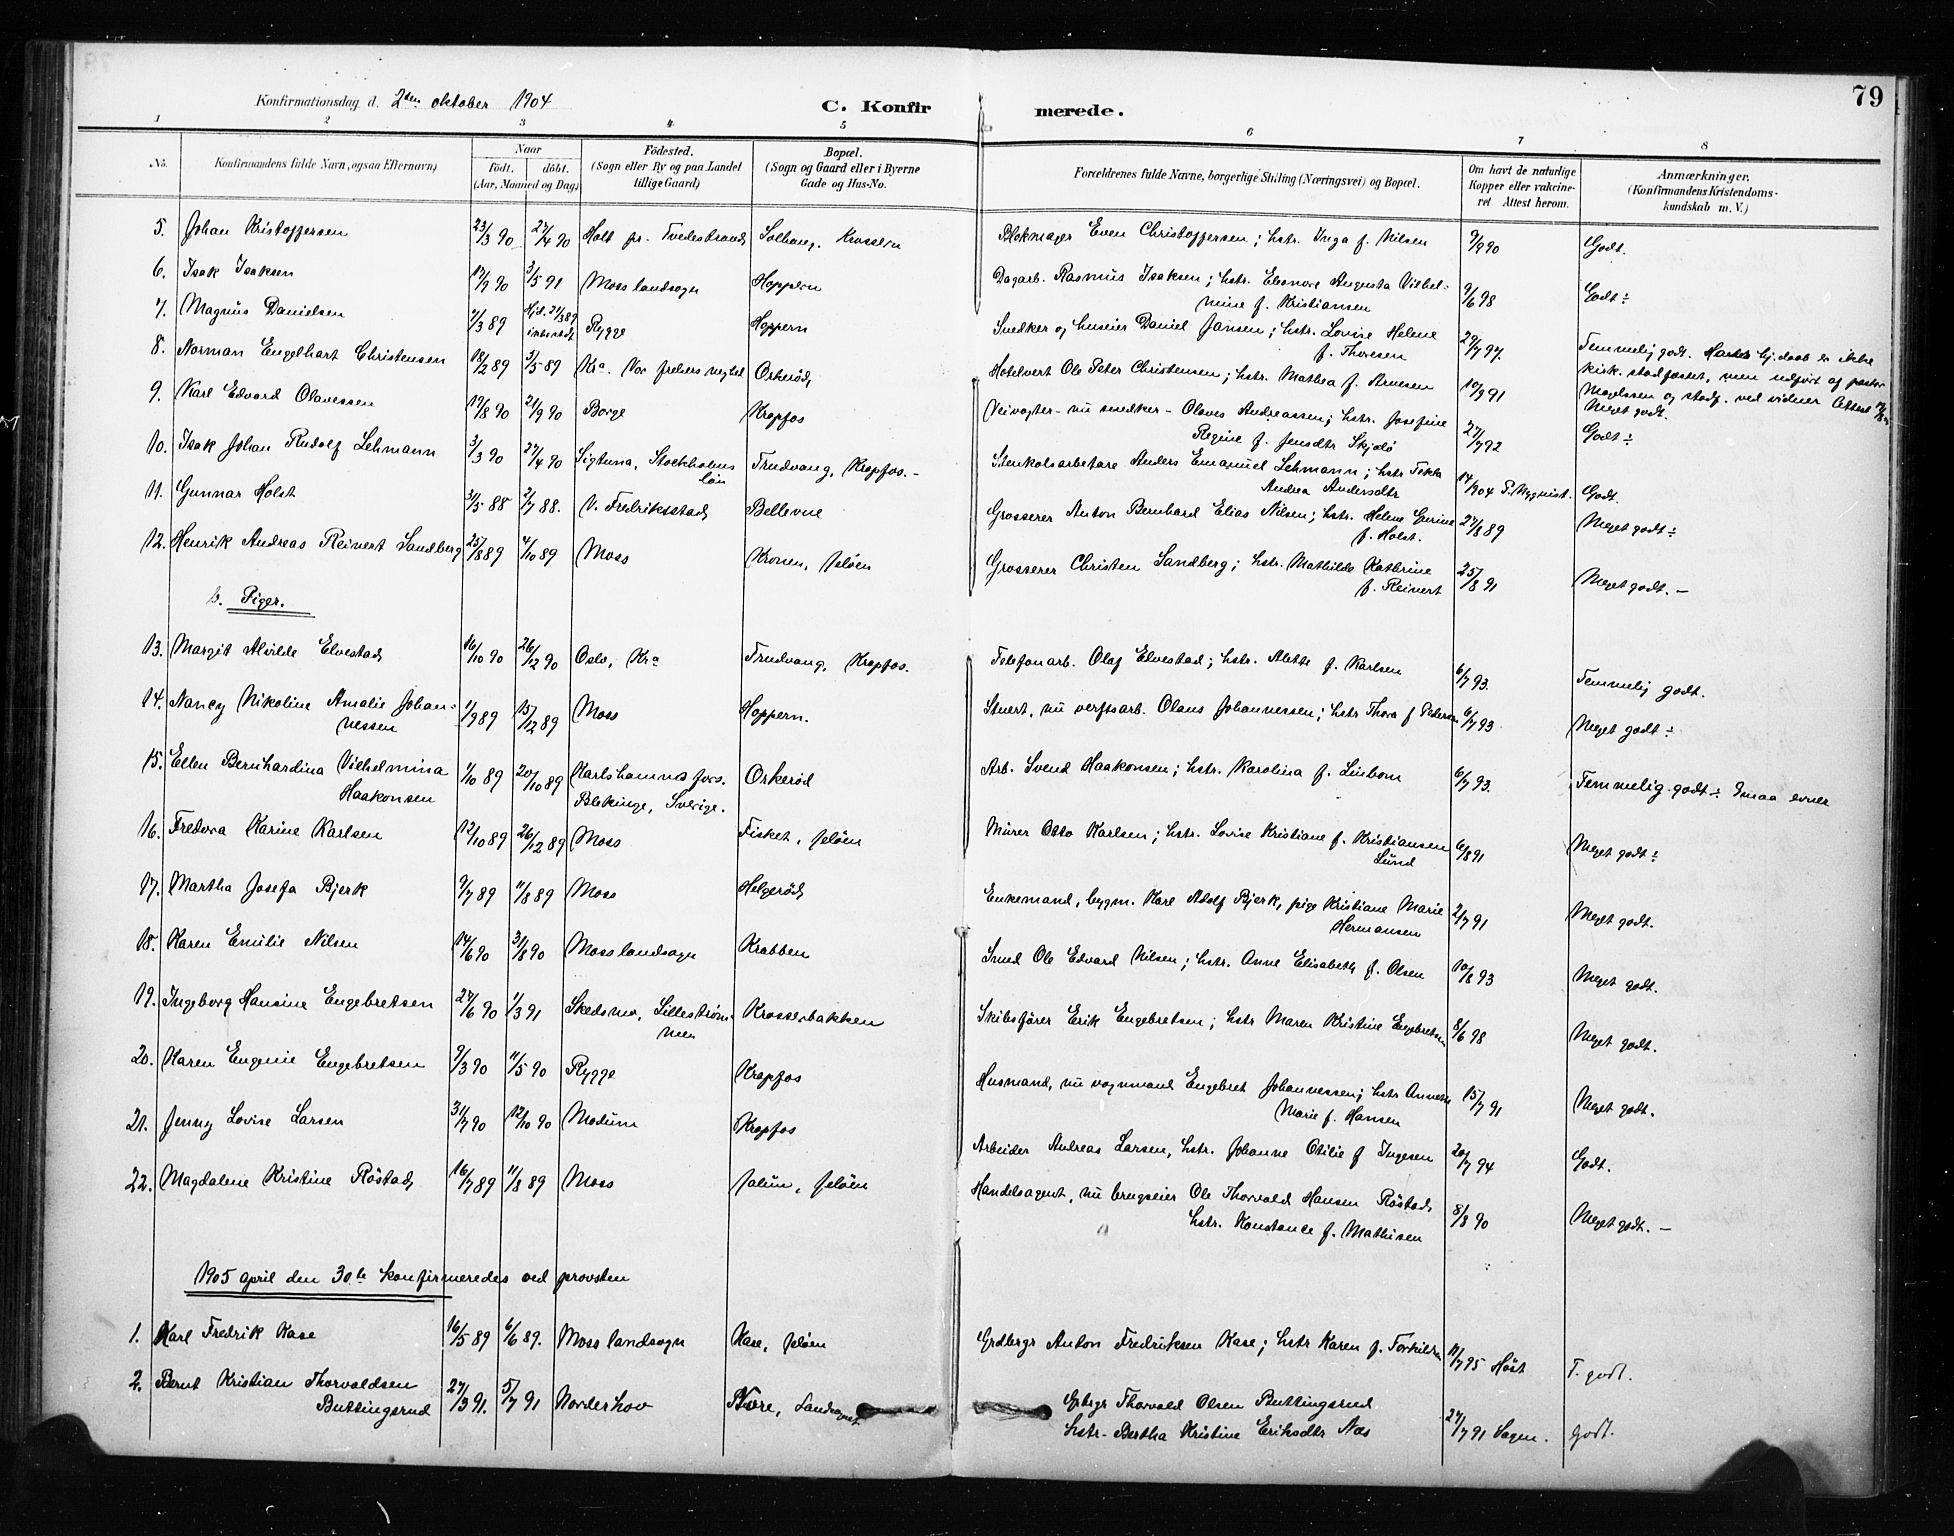 79
Konfirmationsdag d. 2den oktober 1904
C. Konfirmerede.
1 2 3 4 5 6 7 8
No. Konfirmandens fulde Navn, (ogsaa Efternavn) Naar födt. döbt. (Aar, Maaned og Dag) Födested. (Sogn eller By og paa Landet tillige Gaard) Bopæl. (Sogn og Gaard eller i Byerne Gade og Hus-No. Forældrenes fulde Navne, borgerlige Stilling (Næringsvei) og Bopæl. Om havt de naturlige Kopper eller vakcineret. Attest herom. Anmærkninger, (Konfirmandens Kristendomskundskab m. V.)
5. Johan Kristoffersen 23/3 90 27/4 90 Holt pr. Tvedestrand Solhaug, Krossern Blokmager Even Christoffersen; hstr. Inga f. Nilsen 9/9 90 Godt.
6. Isak Isaksen 17/9 90 3/5 91 Moss landsogn Hoppern Dagarb. Rasmus Isaksen; hstr. Eleonore Augusta Vilhelmine f. Kristiansen 9/6 98 Godt ÷
7. Magnus Danielsen 7/3 89 Hjd. 21/3 89 Rygge Hoppern Snedker og huseier Daniel Jansen; hstr. Lovise Helene f. Thoresen 29/7 97. Temmelig godt. Hj.daab er ikke kirk. stadfæstet, men udført af pastor Magelssen og stadf. ved vidner Attest
8. Norman Engelhart Christensen 18/2 89 3/5 89 Kra. Vor frelsers menighed Orkerød Hotelvert Ole Peter Christensen; hstr. Mathea f. Arnesen 10/9 91 Meget godt.
9. Karl Edvard Olavessen 19/8 90 21/9 90 Borge Kropfos Veivogter - nu snedker - Olaves Andreassen; hstr. Josefine Regine f. Jensdtr Skjolø 27/7 92 Godt ÷
10. Isak Johan Rudolf Lehmann 3/3 90 27/4 90 Sigtuna, Stockholms län Trudvang, Kropfos. - Stenkolsarbetare Anders Emanuel Lehmann; hstr Tekla Andrea Andersdtr 14/9 04 P. Nyqvist. Godt.
11. Gunnar Holst 31/5 88 2/7 88. V. Fredriksstad Bellevue Grosserer Anton Bernhard Elias Nilsen; hstr. Helene Gurine f. Holst. 27/8 89 Meget godt ÷
12. Henrik Andreas Reinert Sandberg 25/8 89 4/10 89 Moss Kronen, Jeløen Grosserer Christen Sandberg; hstr. Mathilde Kathrine f. Reinert 25/8 91 Meget godt. -
b. Piger.
13. Margit Alvilde Elvestad 16/10 90 26/12 90 Oslo, Kra Trudvang, Kropfos. Telefonarb. Olaf Elvestad; hstr. Alette f. Karlsen 6/7 93. Temmelig godt.
14. Nancy Nikoline Amalie Johannessen 1/9 89 15/12 89 Moss Hoppern. Stuert, nu verftsarb. Olaus Johannessen; hstr Thora f Pedersen 6/7 93 Meget godt ÷
15. Ellen Bernhardina Vilhelmina Haakonsen 1/10 89 20/10 89 Karlshamns förs. Blekinge, Sverige. Orkerød Arb. Svend Haakonsen; hstr. Karolina f. Linbom 6/7 93. Temmelig godt ÷ Smaa evner
16. Fredova Karine Karlsen 12/10 89 26/12 89 Moss Fisket, Jeløen Murer Otto Karlsen; hstr. Lovise Kristiane f. Kristiansen Lund 6/8 91 Meget godt ÷
17. Martha Josefa Bjerk 9/7 89 11/8 89 Moss Helgerød Enkemand, bygm. Karl Adolf Bjerk, pige Kristiane Marie Hermansen 2/7 91 Meget godt.
18. Karen Emilie Nilsen 14/6 90 31/8 90 Moss landsogn Krabben Smed Ole Edvard Nilsen; hstr. Anne Elisabeth f. Olsen 10/8 93 Meget godt.
19. Ingeborg Hansine Engebretsen 27/6 90 1/3 91 Skedsmo, Lillestrømmen Krosserbakken Skibsfører Erik Engebretsen; hstr Maren Kristine Engebretsen 8/6 98 Meget godt.
20. Karen Eugenie Engebretsen 9/3 90 11/5 90 Rygge Kropfos Husmand, nu vognmand Engebret Johannessen; hstr Annette Marie f. Hansen 15/7 91 Meget godt.
21. Jenny Lovise Larsen 31/7 90 12/10 90 Modum Kropfos Arbeider Andreas Larsen, hstr. Johanne Otilie f Ingesen 20/7 94 Godt.
22. Magdalene Kristine Röstad 16/7 89 11/8 89 Moss Jalun, Jeløen Handelsagent, nu brugseier Ole Thorvald Hansen Röstad, hstr. Konstance f. Mathisen 8/8 90 Meget godt. -
1905 april den 30te konfirmeredes ved provsten
1. Karl Fredrik Kase 16/5 89 6/6 89. Moss landsogn Kase, Jeløen Grdbrgr Anton Fredriksen Kase; hstr Karen f. Torkildsen 11/7 95 Höst T. godt.
2. Bernt Kristian Thorvaldsen Buttingsrud 27/3 91. 5/7 91 Norderhov Nore, Landsognet Thorvald Olsen Buttingsrud hstr- Bertha Kristine Eriksdtr Næs 27/7 91 Sagen. godt.